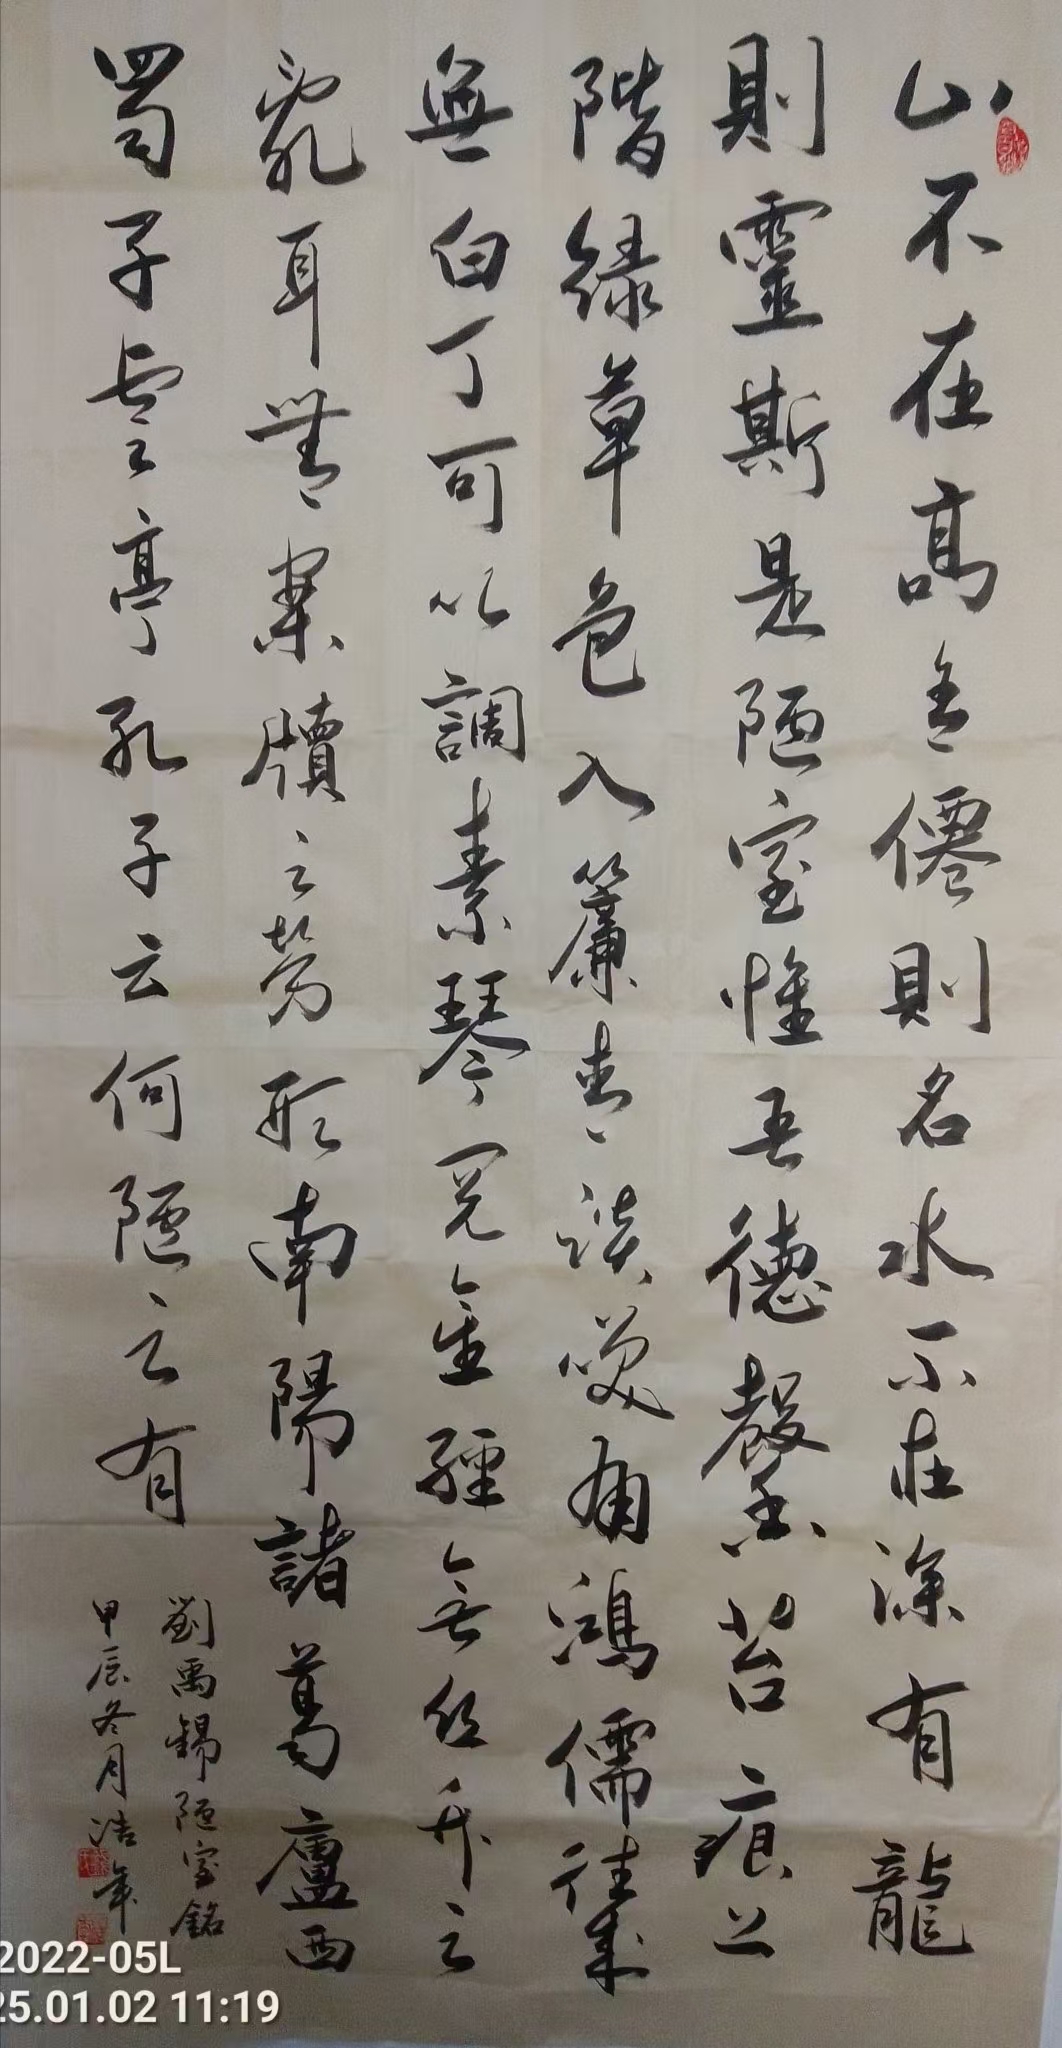 山不在高有僊則名水不在深有龍
則靈斯是陋室惟吾德馨苔痕上
階緑草色入簾青談笑有鴻儒往來
無白丁可以調素琴閱金經無絲竹之
亂耳無案牘之勞形南陽諸葛廬西
蜀子雲亭孔子云何陋之有
劉禹錫陋室銘
甲辰冬月浩年
2022-05L
25.01.02 11:19